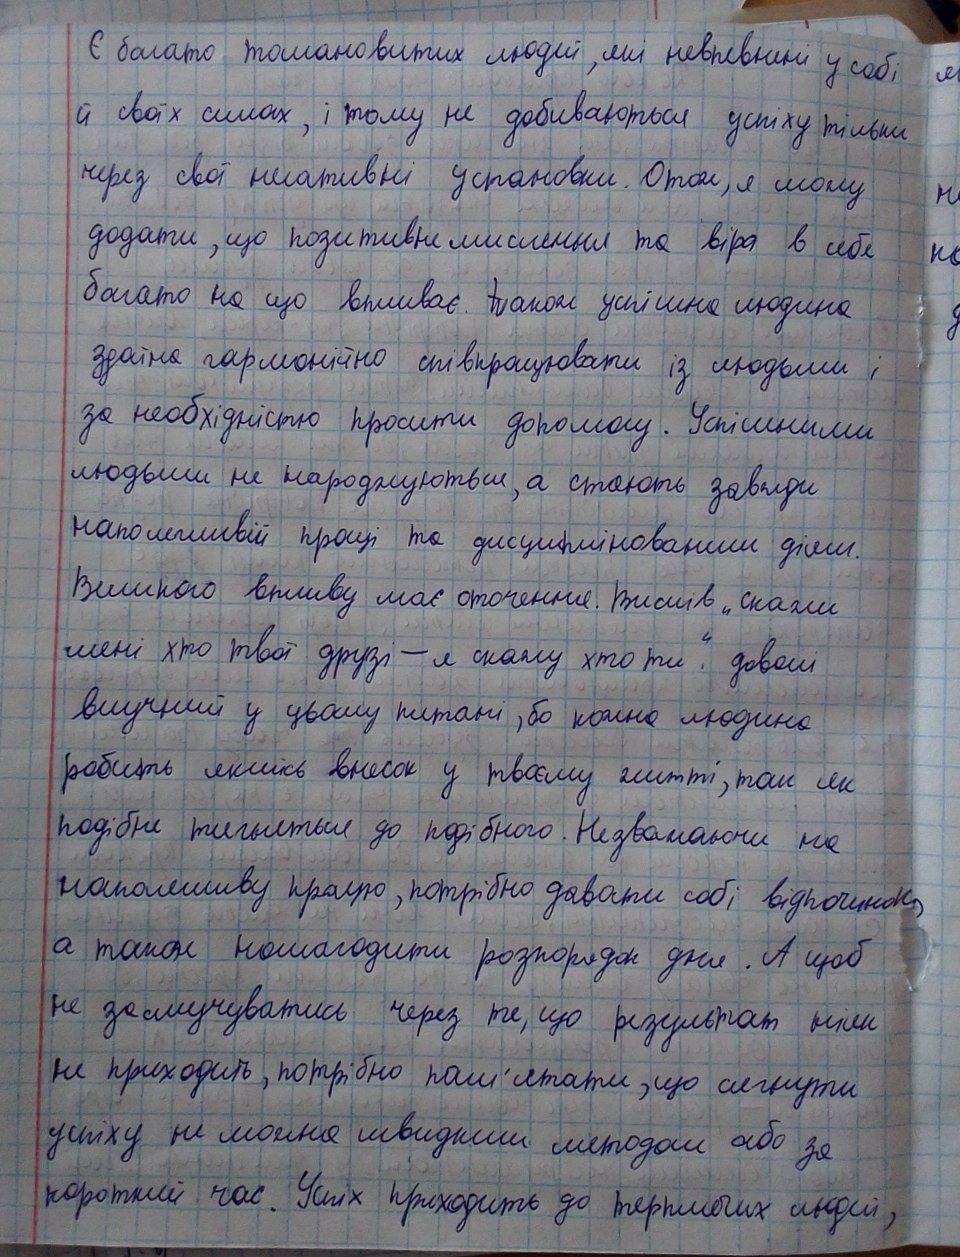 Є багато талановитих людей, які невпевнені у собі
й своїх силах, і тому не добиваються успіху тільки
через свої негативні установки. Отож, я можу
додати, що позитивне мислення та віра в себе
багато на що впливає. Також успішна людина
здатна гармонійно співпрацювати із людьми і
за необхідністю просити допомогу. Успішними
людьми не народжуються, а стають завдяки
наполегливій праці та дисциплінованим діям.
Великого впливу має оточення. Вислів „скажи
мені хто твої друзі – я скажу хто ти“. доволі
влучний у цьому питані, бо кожна людина
робить якийсь внесок у твоєму житті, так як
подібне тягнеться до подібного. Незважаючи на
наполегливу працю, потрібно давати собі відпочинок,
а також налагодити розпорядок дня. А щоб
не засмучуватись через те, що результат ніяк
не приходить, потрібно пам'ятати, що сягнути
успіху не можна швидким методом або за
короткий час. Успіх приходить до терплячих людей,